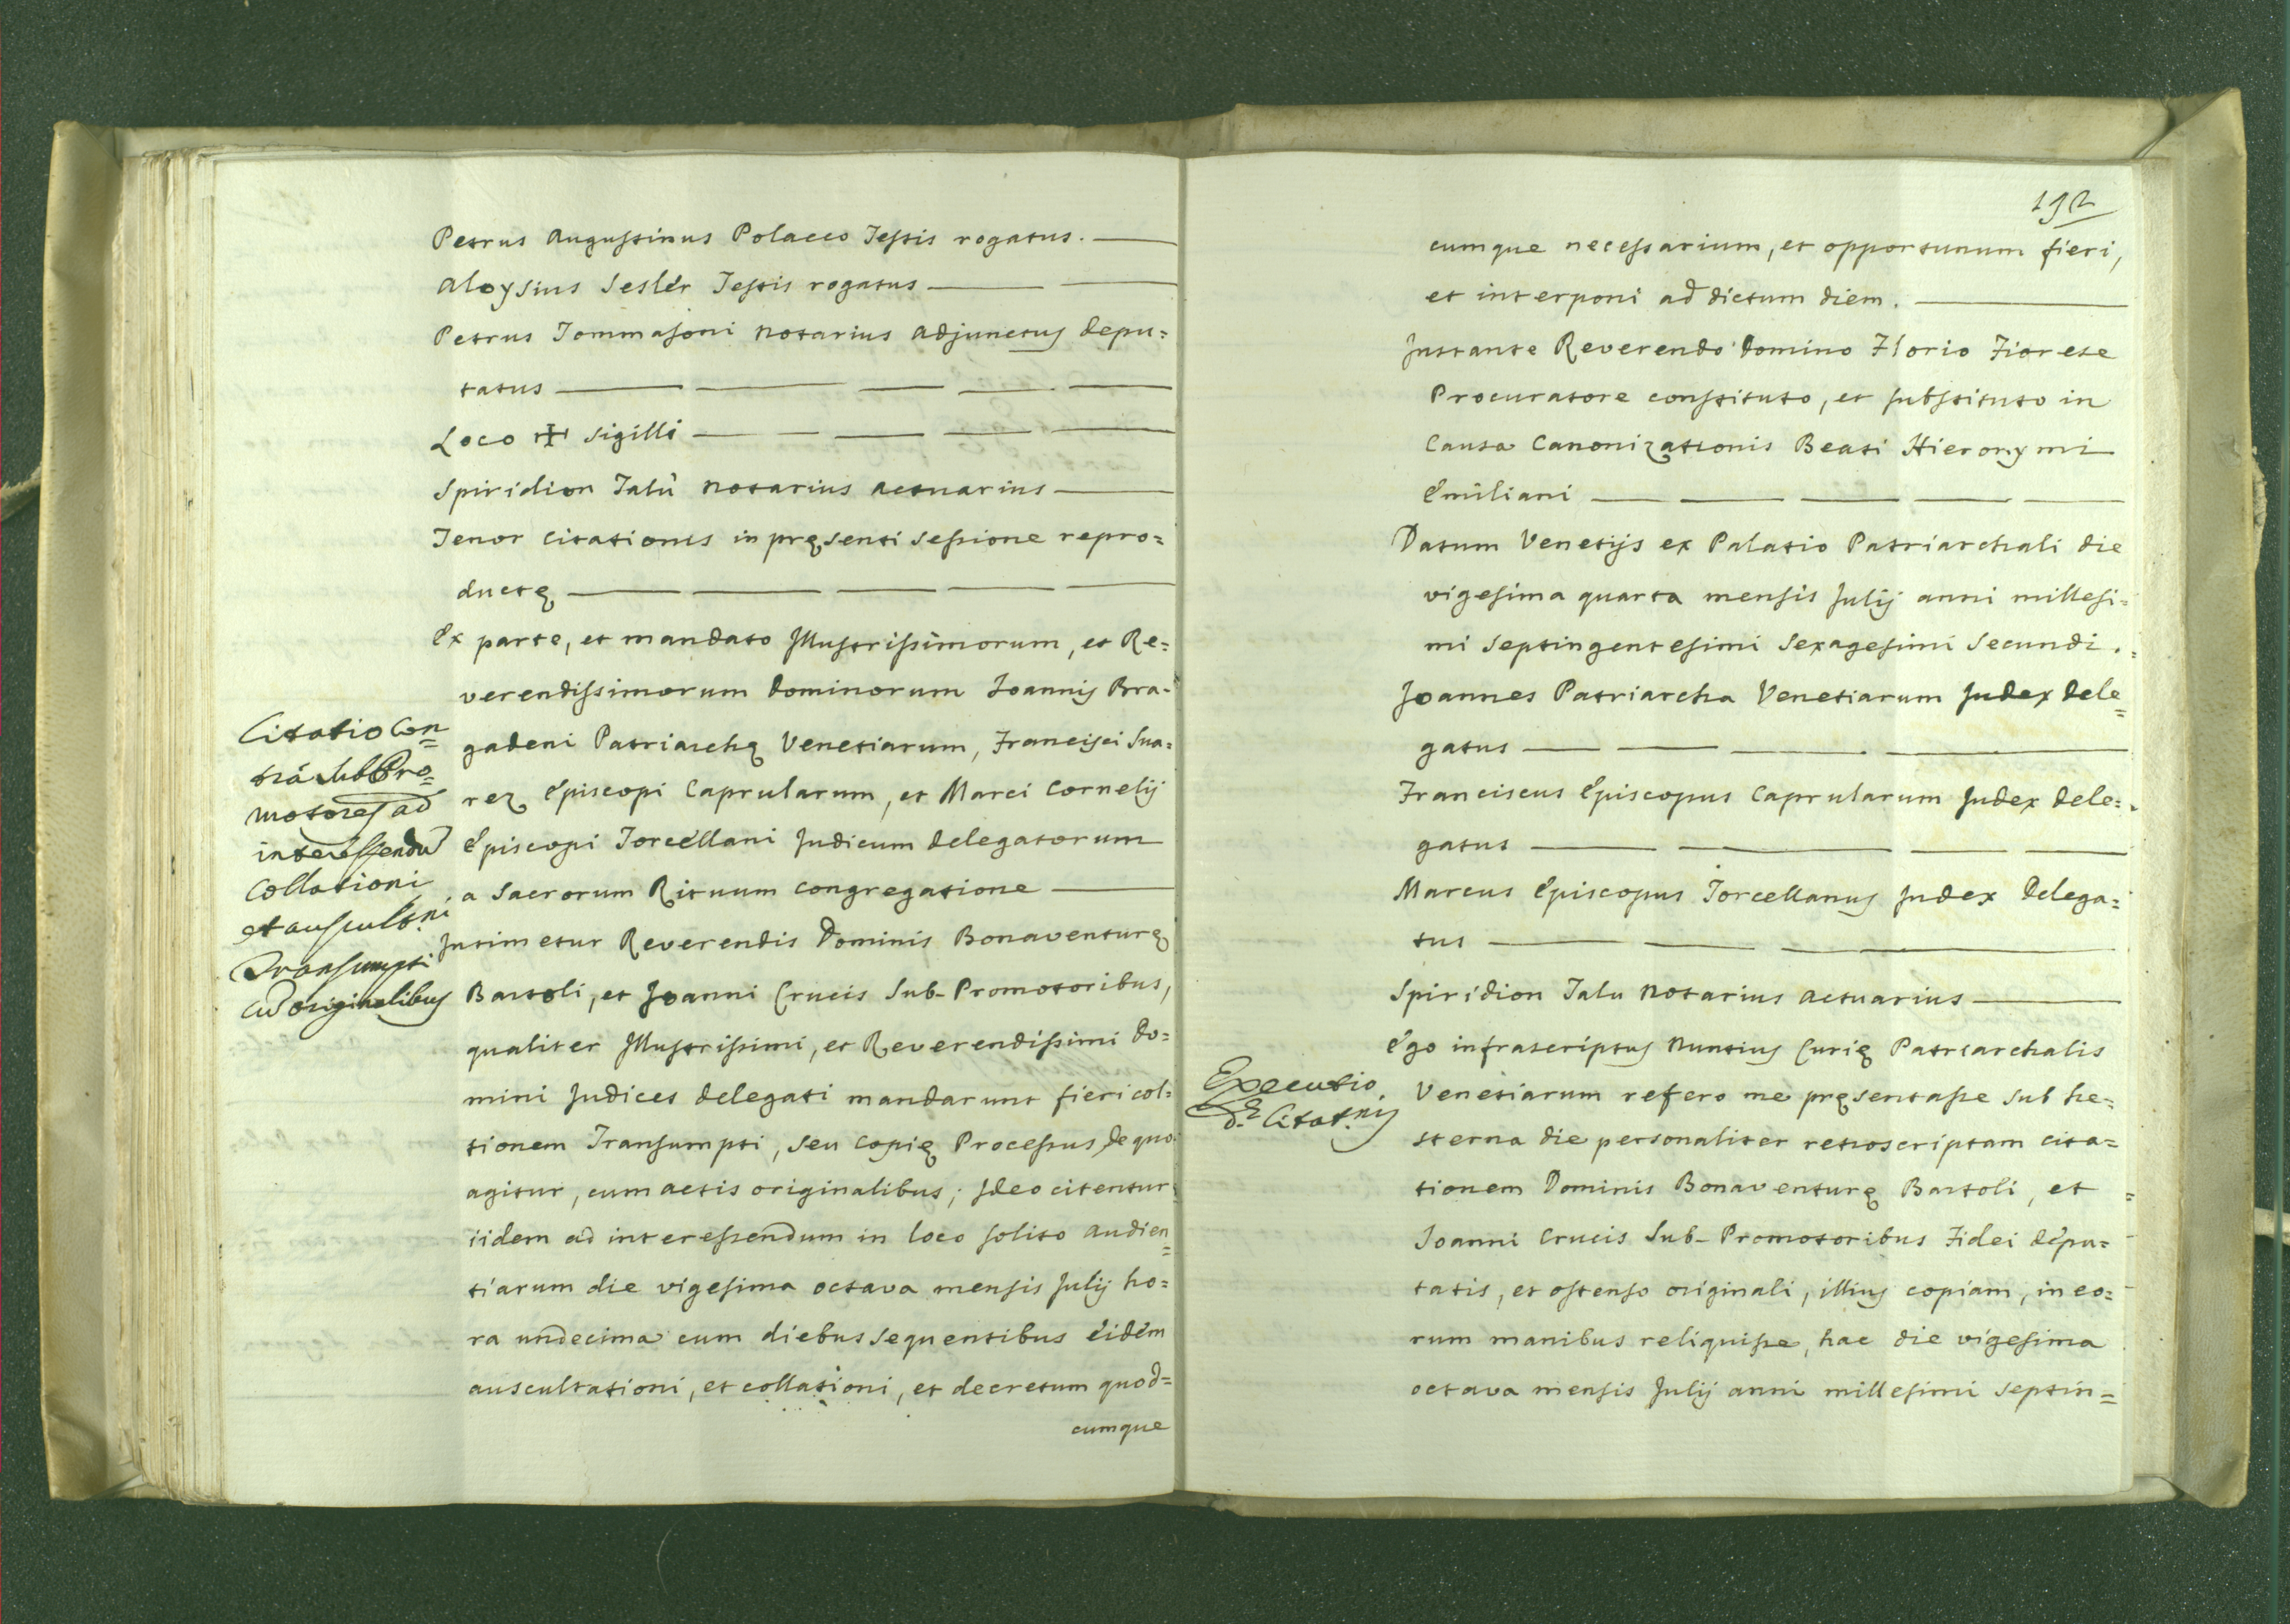 Petrus Augustinus Polacco Testis rogatus.
Aloysius Sesler Testis rogatus
Petrus Tommasoni Notarius Adjunctus depu=
tatus
Loco ✠ Sigilli
Spiridion Talù Notarius Actuarius
Tenor Citationis in pręsenti Sessione repro=
ductę
Ex parte, et mandato Illustrissimorum, et Re=
verendissimorum Dominorum Joannis Bra-
gadeni Patriarchę Venetiarum, Francisci Sua=
rez Episcopi Caprularum, et Marci Cornelij
Episcopi Torcellani Judicum Delegatorum
a Sacrorum Rituum Congregatione
Intimetur Reverendis Dominis Bonaventurę
Bartoli, et Joanni Crucis Sub-Promotoribus,
qualiter Illustrissimi, et Reverendissimi Do=
mini Judices delegati mandarunt fieri col=
tionem Transumpti, seu Copię Processus, de quo
agitur, cum actis originalibus; Ideo citentur
iidem ad interessendum in loco solito Audien
=
tiarum die vigesima octava mensis Julij ho=
ra undecima cum diebus sequentibus eidem
auscultationi, et collationi, et decretum quod=
cumque
Citatio Con
=
trà Sub Pro
=
motores ad
interessendũ
Collationi
et auscult.ni
Transumpti
cũ originalibus
192
cumque necessarium, et opportunum fieri,
et interponi ad dictum diem.
Instante Reverendo Domino Florio Fiorese
Procuratore constituto, et substituto in
Causa Canonizationis Beati Hieronymi
Emiliani
Datum Venetijs ex Palatio Patriarchali die
vigesima quarta mensis Julij anni millesi=
mi Septingentesimi Sexagesimi Secundi.
Joannes Patriarcha Venetiarum Judex Dele
=
gatus
Franciscus Episcopus Caprularum Judex Dele=
gatus
Marcus Episcopus Torcellanus Judex Delega=
tus
Spiridion Talu Notarius Actuarius
Ego infrascriptus Nuntius Curię Patriarchalis
Venetiarum refero me pręsentasse sub he=
sterna die personaliter retroscriptam cita=
tionem Dominis Bonaventurę Bartoli, et
Joanni Crucis Sub-Promotoribus Fidei Depu=
tatis, et ostenso originali, illius copiam, in eo=
rum manibus reliquisse, hac die vigesima
octava mensis Julij anni millesimi septin=
Executio
d.æ Citat.nis